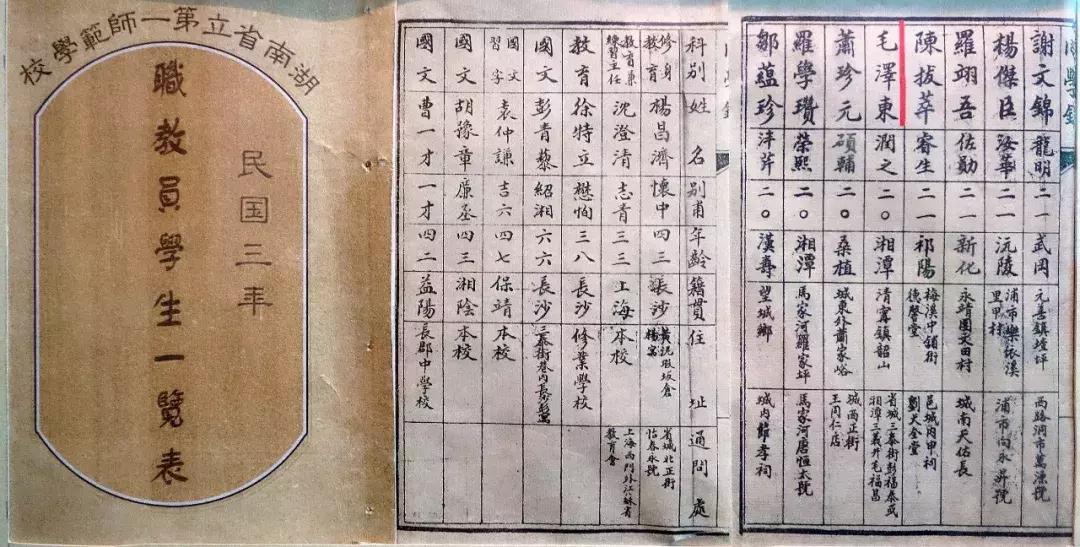 湖南省立第一師範學校
民国三年
職教員學生一覽表
科別 姓名 別甫 年齡 籍貫 住址 通問處
修身教育 楊昌濟 懷中 四三 長沙 板倉楊寓 省城北正街怡春永號
教育兼練習主任 沈澄清 志青 三三 上海 本校 上海西門外江蘇省教育會
教育 徐特立 懋恂 三八 長沙 修業學校
國文 彭青藜 紹湘 六六 長沙 三泰街巷內長彭寓
國文習字 袁仲謙 吉六 四七 保靖 本校
國文 胡豫章 廉丞 四三 湘陰 本校
國文 曹一才 一才 四二 益陽 長郡中學校
同學錄
謝文錦 龍明 二一 武岡 元善鎮 坪 西路洞市
楊傑臣 汝華 二一 沅陵 浦市樂依溪里甲村 浦市向永昇號
羅翊吾 佐勛 二一 新化 永靖團天田村 城南天佑長
陳拔萃 睿生 二一 祁陽 梅溪中舖街德馨堂 邑城內申祠劉大全堂
毛澤東 潤之 二〇 湘潭 清寗鎮韶山 省城三泰街彭福泰或湘潭三義井毛福昌
蕭珍元 碩輔 二〇 桑植 城東外蕭家峪 城西正街王同仁店
羅學瓚 榮熙 二〇 湘潭 馬家河羅家坪 馬家河唐恒太號
鄒蘊珍 泮芹 二〇 漢壽 望城鄉 城內節孝祠